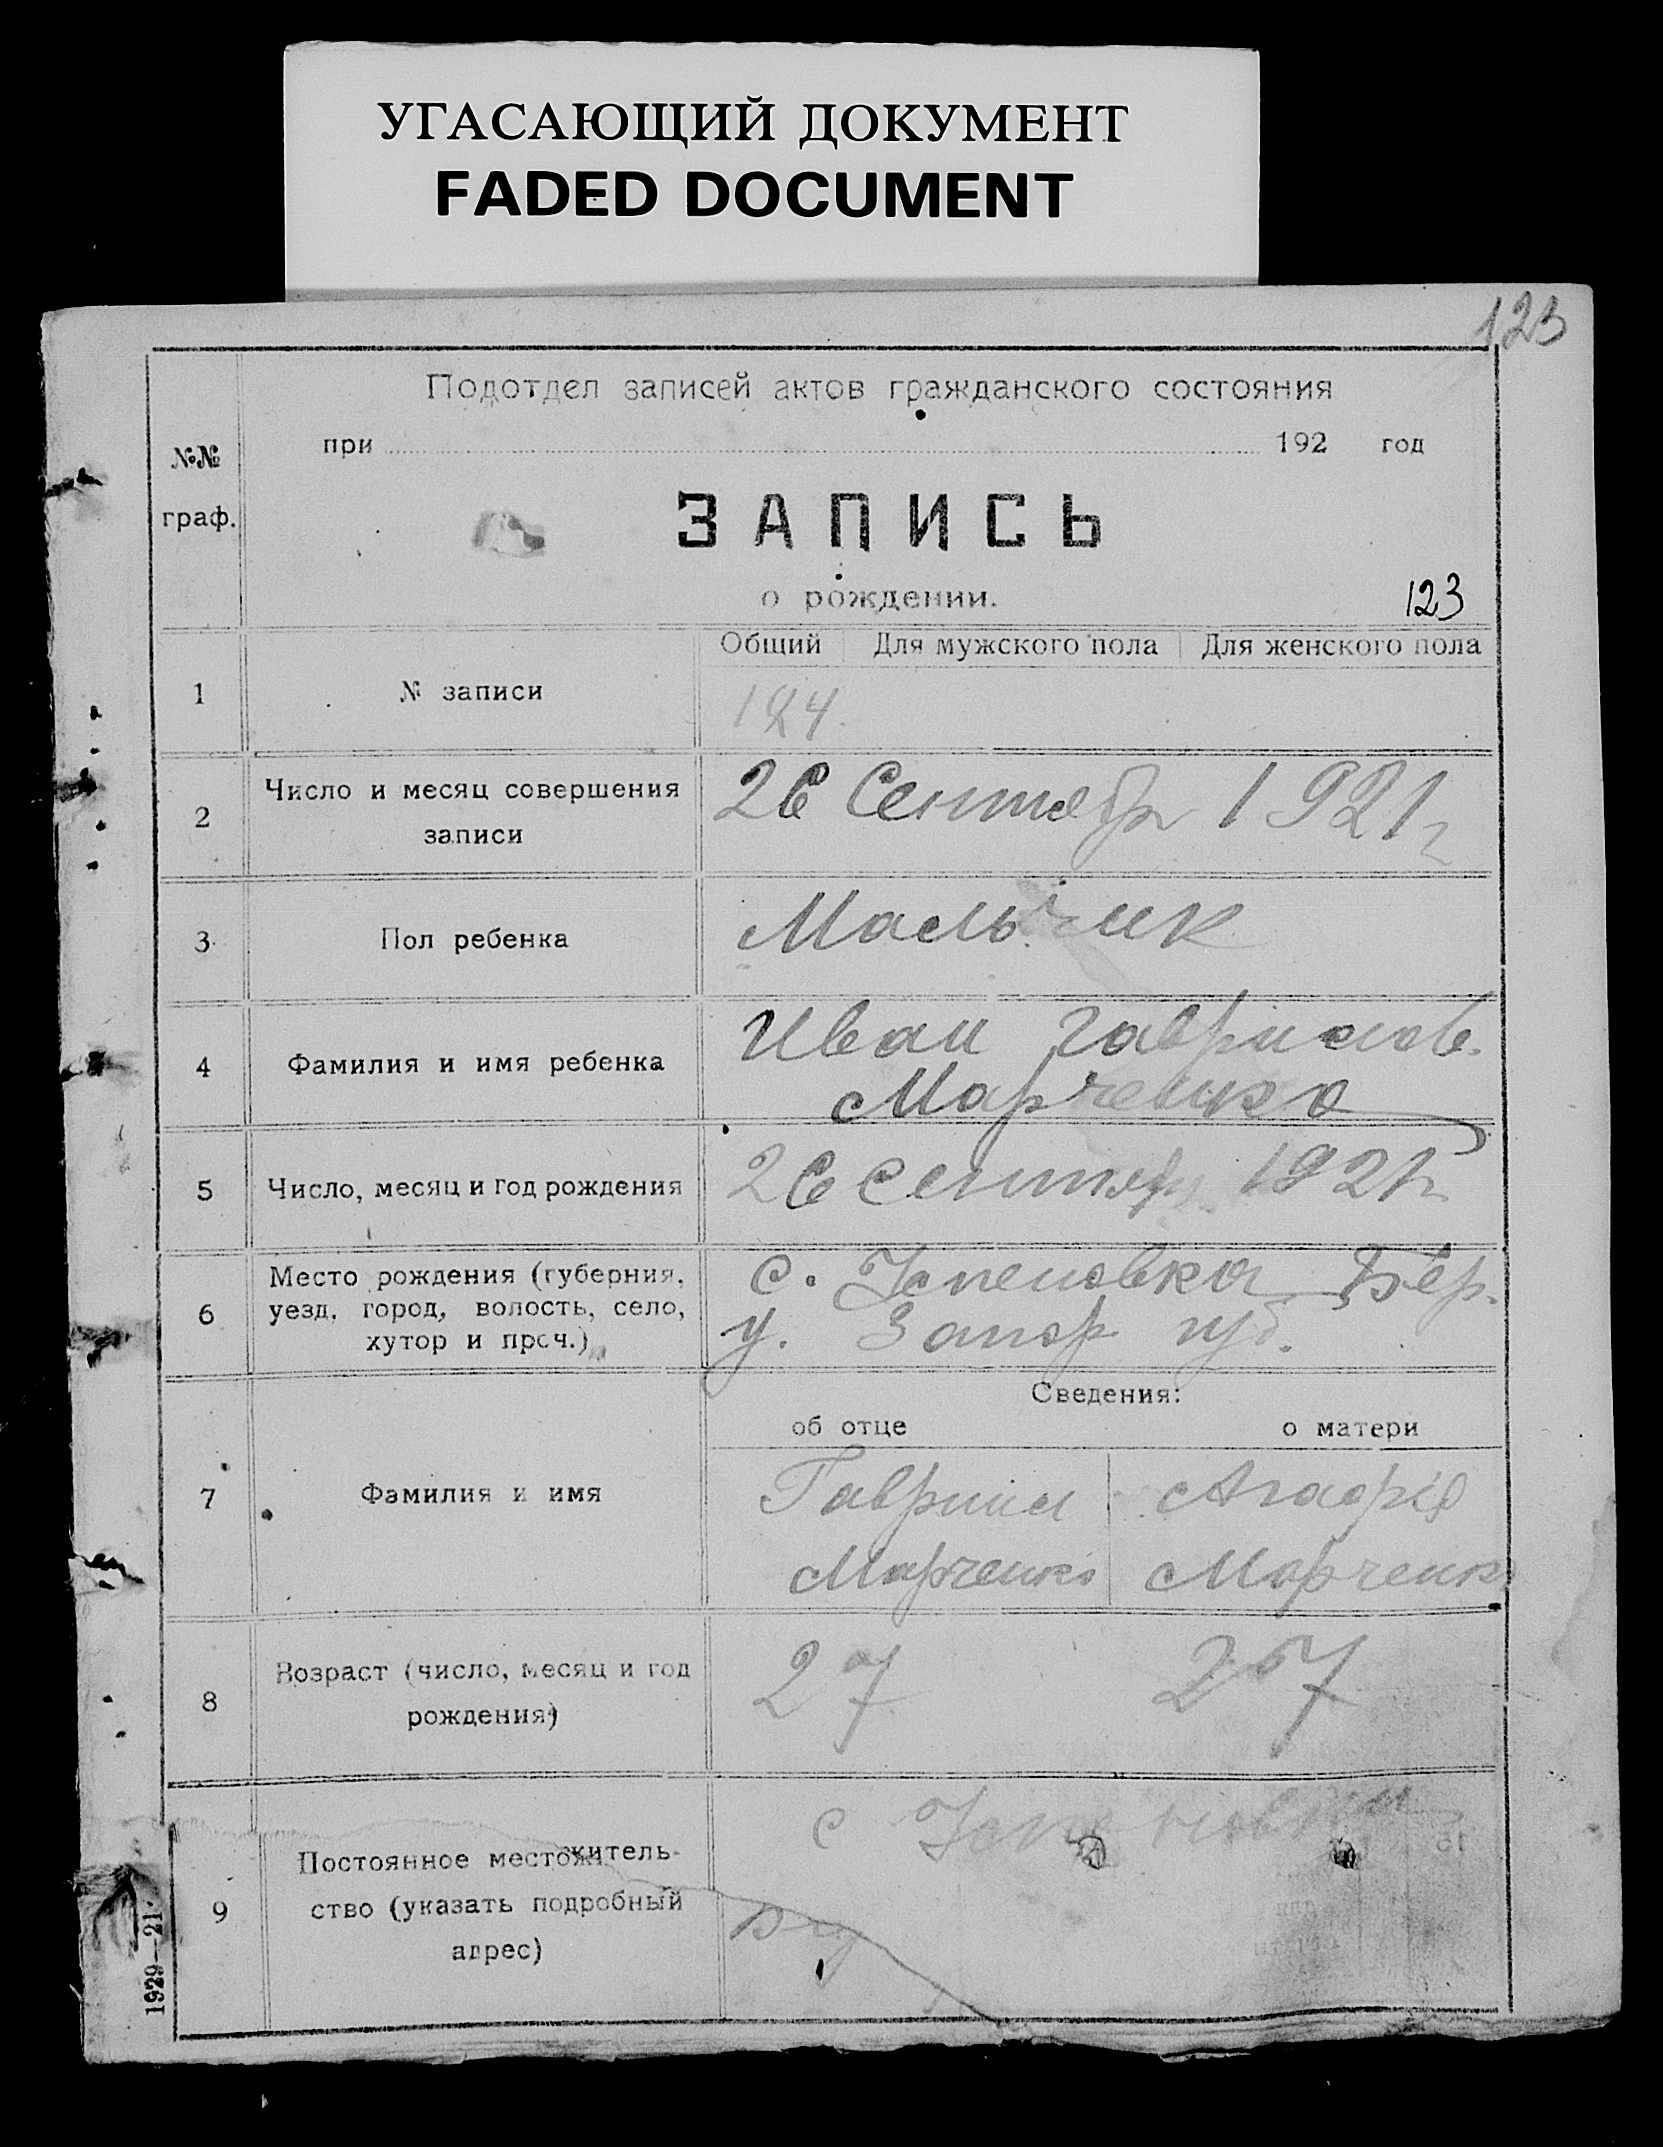 УГАСАЮЩИЙ ДОКУМЕНТ
FADED DOCUMENT
123
Подотдел записей актов гражданского состояния
№№
граф.
при 192 год
ЗАПИСЬ
о рождении.
123
Общий Для мужского пола Для женского пола
1 № записи 124
2 Число и месяц совершения записи
26 Сентябр 1921 г
3 Пол ребенка Мальчик
4 Фамилия и имя ребенка
Иван Гаврилов.
Марченко
5 Число, месяц и год рождения 26 сентяб 1921 г
6 Место рождения (губерния,
уезд, город, волость, село,
хутор и проч.)
с. Успеновка Бер.
у. Запор губ.
Сведения:
об отце о матери
7 Фамилия и имя
Гавриил
Марченко Марченко
8 Возраст (число, месяц и год
рождения)
27 27
9 Постоянное местожитель-
ство (указать подробный
адрес)
с
1929—21.